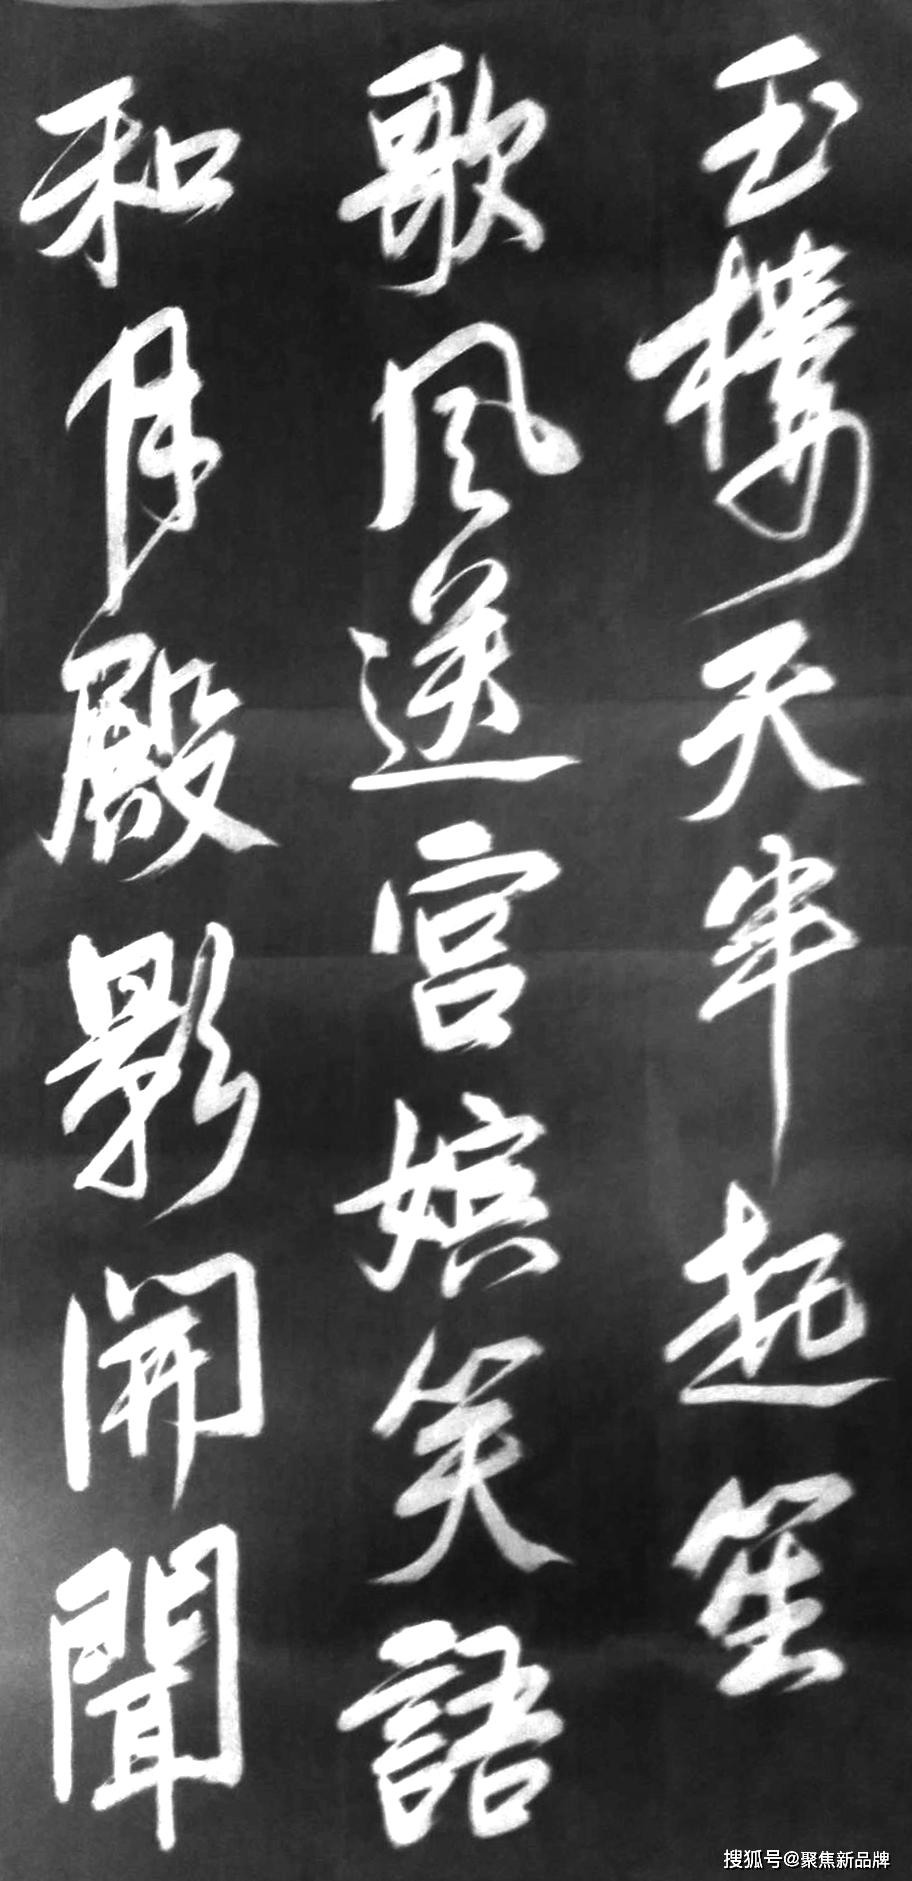 玉樓天半起笙
歌風送宮嬪笑語
和月殿影開聞
搜狐号@聚焦新品牌